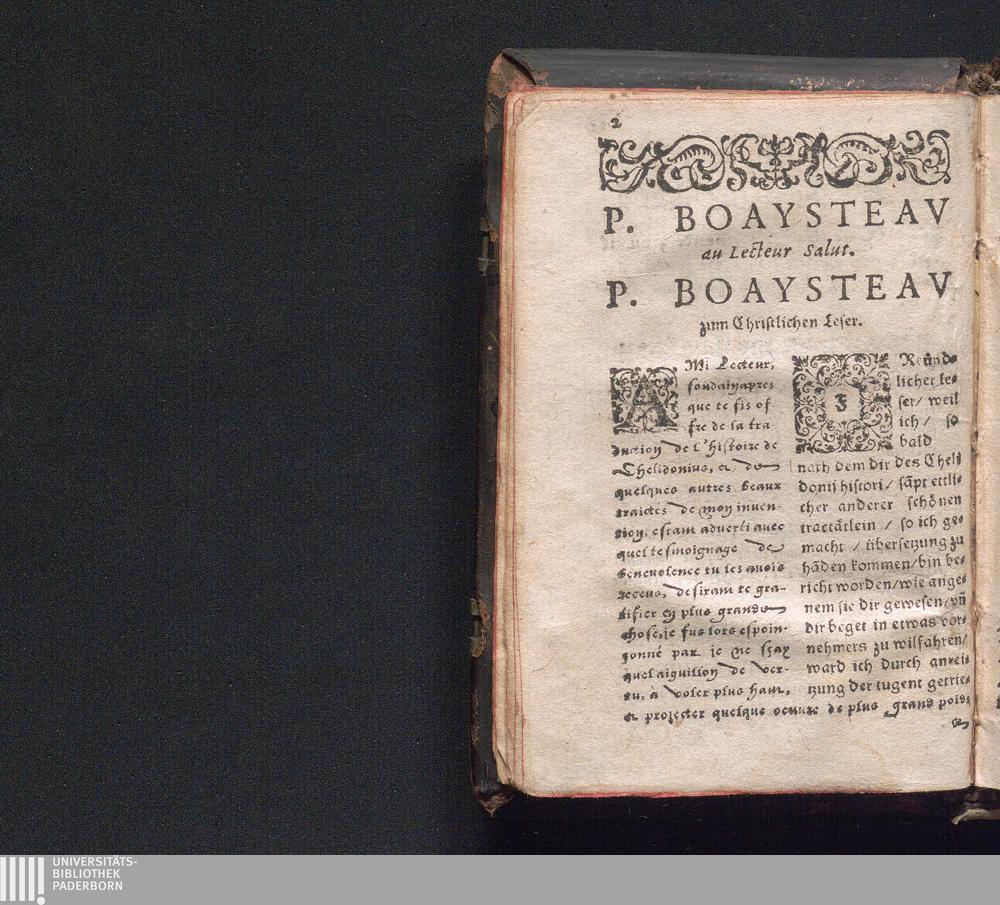 2
P. BOAYSTEAV
au Lecteur Salut.
P. BOAYSTEAV
zum Christlichen Leser.
AMi Lecteur,
soudain apres
que te fis of
fre de la tra
duction de l'histoire de
Chelidonius, & de
quelques autres beaux
traictés de mon inuen-
tion, estant aduerti auec
quel tesmoignage de
beneuolence tu les auois
receus, desirant te gra-
tifier en plus grande
chose, ie fus lors espoin-
çonné par ie ne sçay
quel aiguillon de ver-
tu, à voler plus haut,
& proiecter quelque oeuure de plus grand pois,
FReünd-
licher le-
ser/ weil
ich/ so
bald
nach dem dir des Cheli
donij histori/ sãpt ettli-
cher anderer schönen
tractätlein/ so ich ge-
macht/ übersetzung zu
hãden kommen/ bin be-
richt worden/ wie ange-
nem sie dir gewesen/ vñ
dir beget in etwas vor-
nehmers zu wilfahren/
ward ich durch anrei-
tzung der tugent getrie-
&
UNIVERSITÄTS-
BIBLIOTHEK
PADERBORN